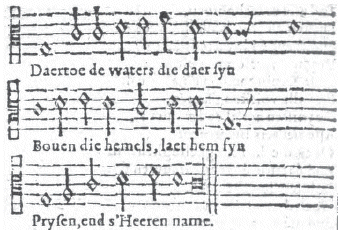 Daertoe de waters die daer syn
Bouen die hemels, laet hem syn
Prysen, end s'Heeren name.